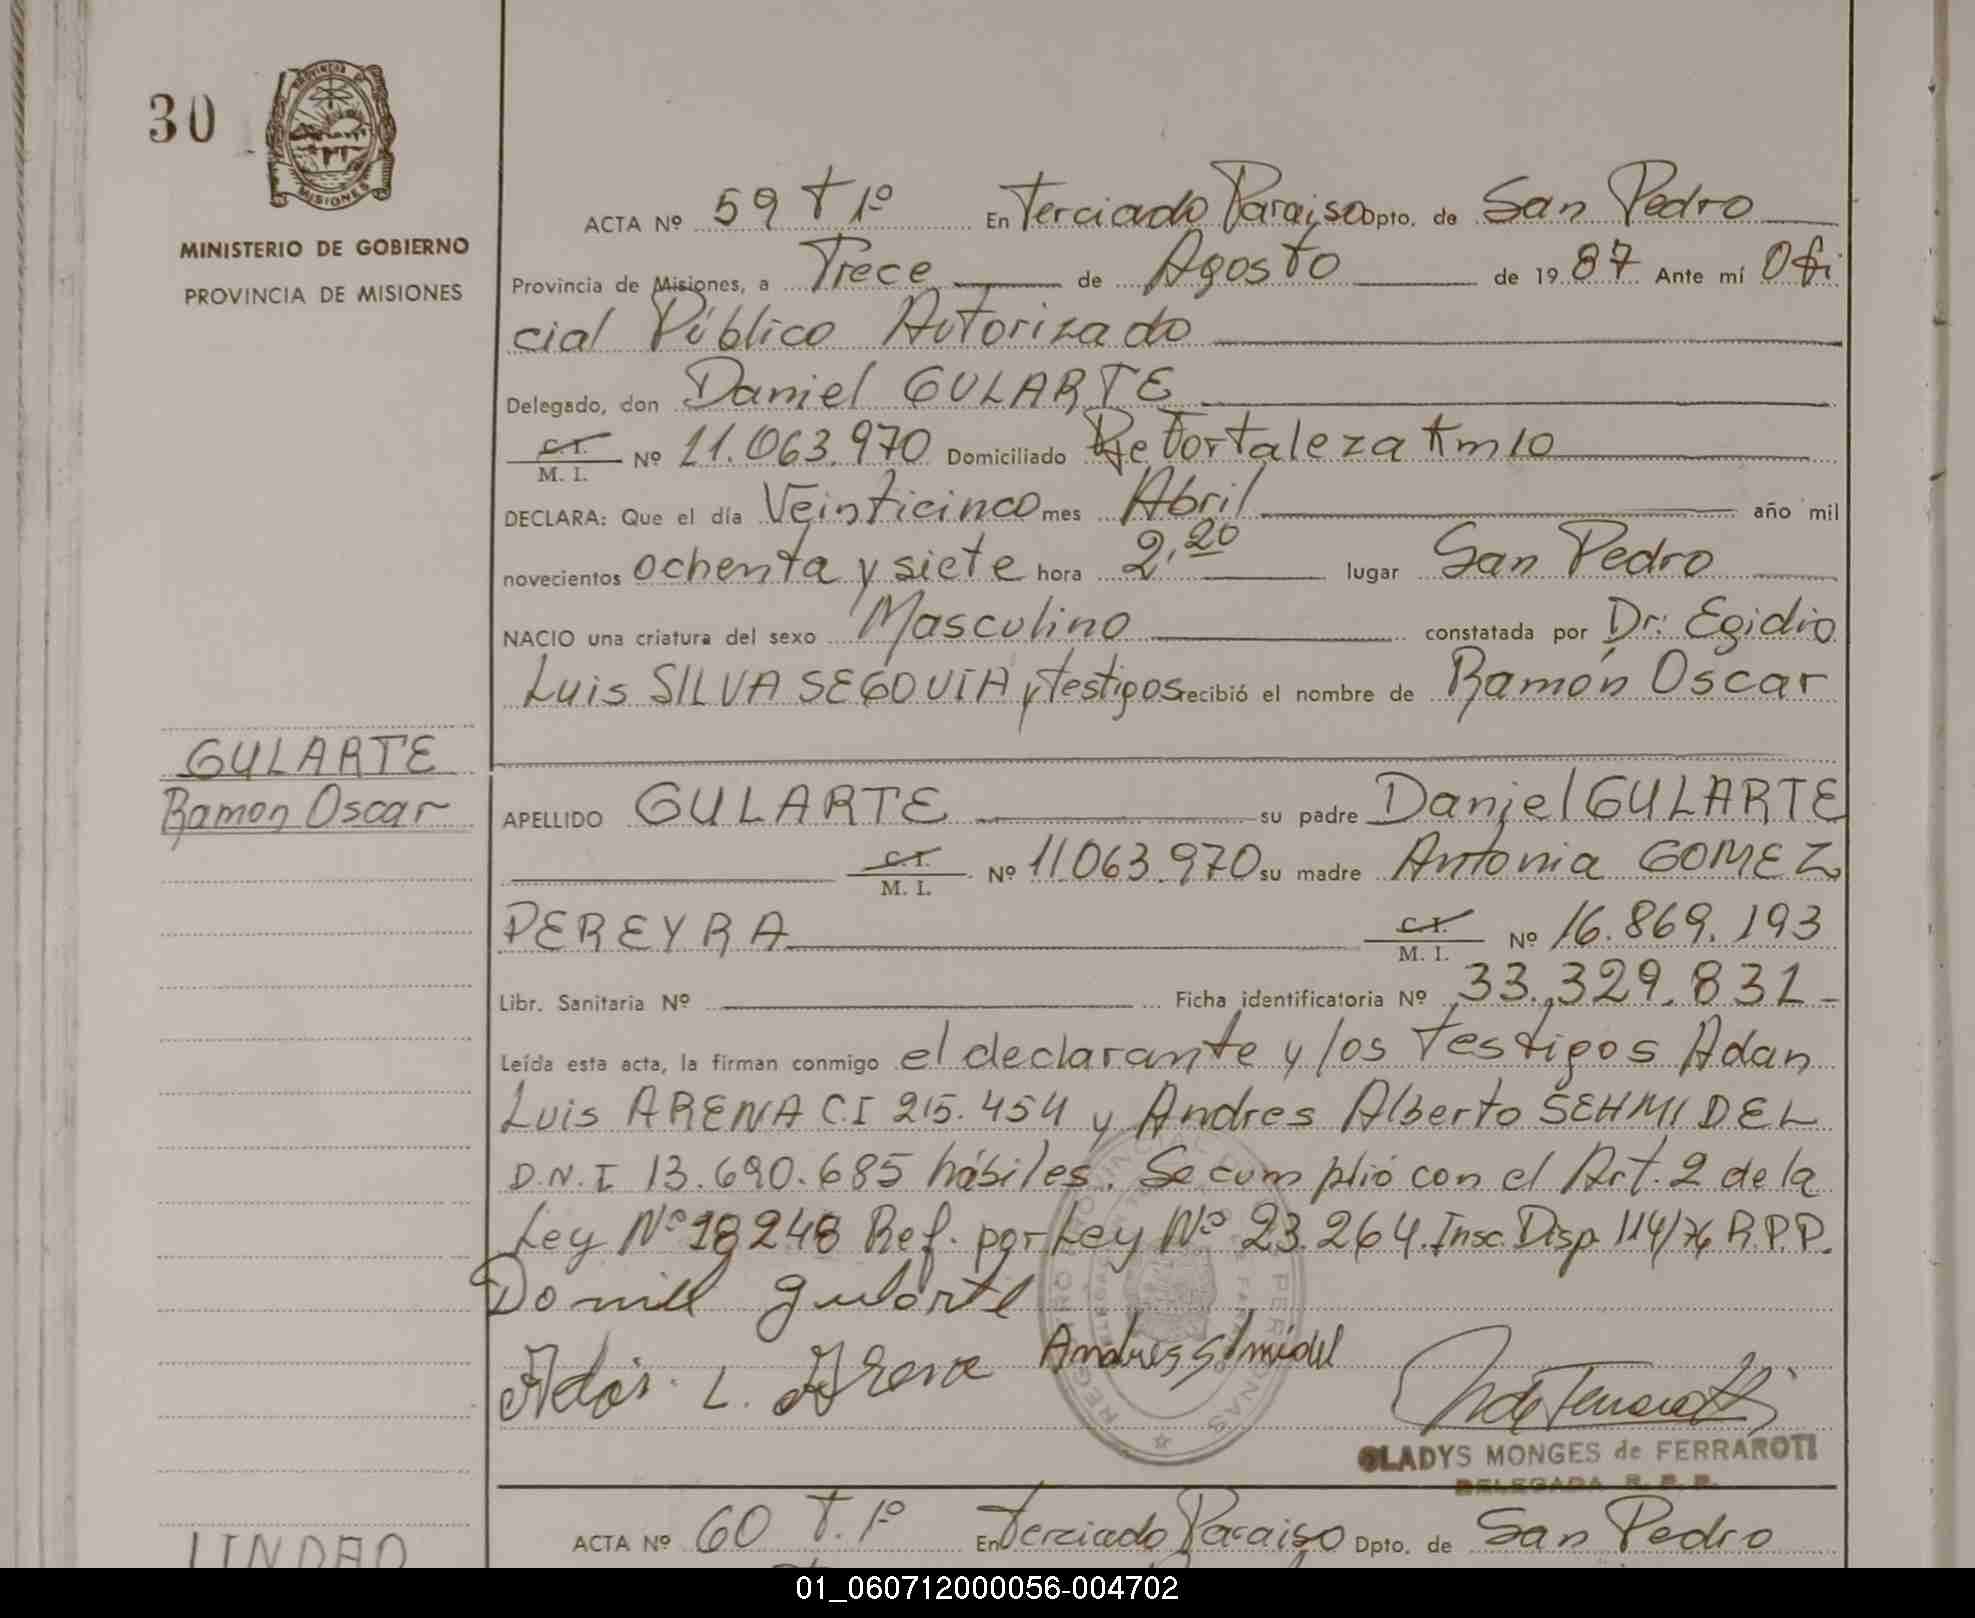 30
PROVINCIA DE
MISIONES
MINISTERIO DE GOBIERNO
PROVINCIA DE MISIONES
ACTA Nº 59 T 1º En Terciado Paraiso Dpto. de San Pedro
Provincia de Misiones, a Trece de Agosto de 1987 Ante mí Ofi
cial Público Autorizado
Delegado, don Daniel GULARTE
C.I.
M. I. Nº 11.063.970 Domiciliado Pje Fortaleza Km 10
DECLARA: Que el día Veinticinco mes Abril año mil
novecientos ochenta y siete hora 2,20 lugar San Pedro
NACIO una criatura del sexo Masculino constatada por Dr: Egidio
Luis SILVA SEGOVIA y testigos recibió el nombre de Ramón Oscar
GULARTE
Ramon Oscar
APELLIDO GULARTE su padre Daniel GULARTE
C.I.
M. I. Nº 11.063.970 su madre Antonia GOMEZ
PEREYRA C.I.
M. I. Nº 16.869.193
Libr. Sanitaria Nº Ficha identificatoria Nº 33.329.831
Leída esta acta, la firman conmigo el declarante y los Testigos Adan
Luis ARENA C.I 215.454 y Andres Alberto SEHMIDEL
D.N.I 13.690.685 hábiles. Se cumplió con el Art. 2 de la
Ley Nº 18248 Ref. por Ley Nº 23.264. Insc. Disp. 114/76 R.P.P.
Daniel Gularte
Adán L. Arena Andres Shmidel
GLADYS MONGES de FERRAROTI
DELEGADA R. P. P.
ACTA Nº 60 T. 1º En Terciado Paraiso Dpto. de San Pedro
LINDAO
01_060712000056-004702